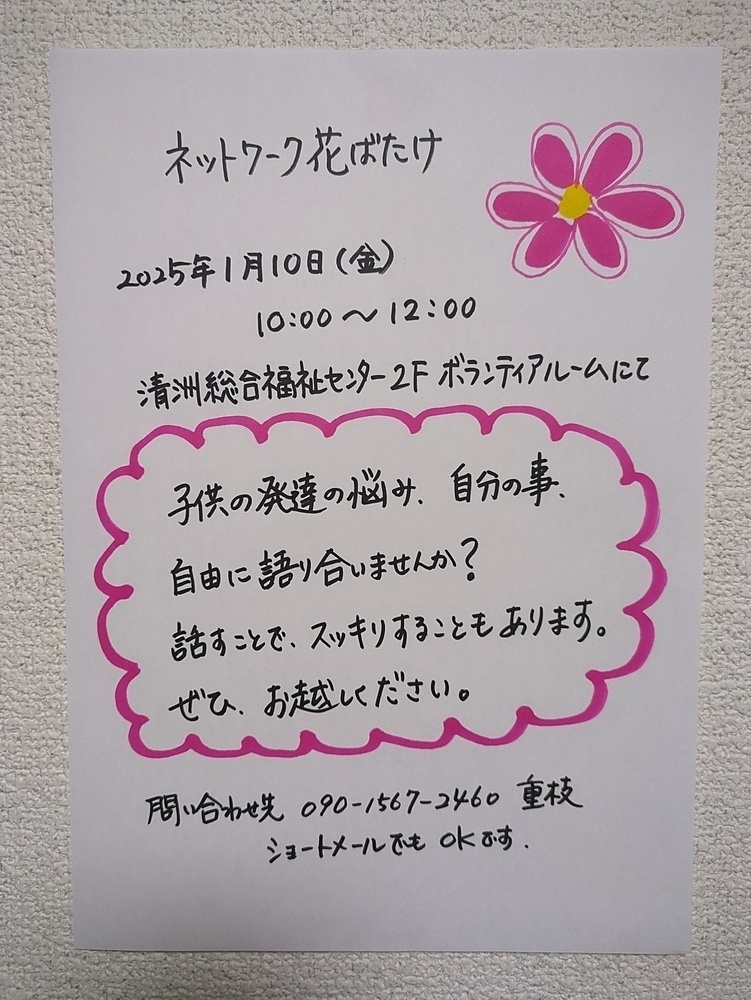 ネットワーク花ばたけ
2025年1月10日(金)
10:00～12:00
清洲総合福祉センター2F ボランティアルームにて
子供の発達の悩み、自分の事、
自由に語り合いませんか?
話すことで、スッキリすることもあります。
ぜひ、お越しください。
問い合わせ先 090-1567-2460 重枝
ショートメールでも OKです.